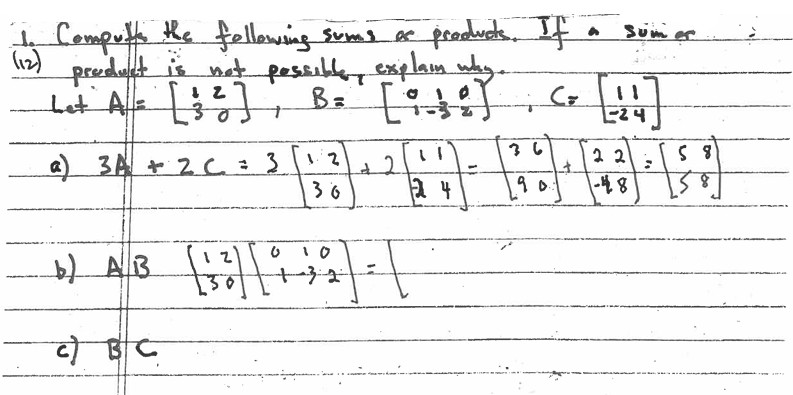 1. Compute the following sums or products. If a sum or
(12) product is not possible, explain why.
Let A = [1 2; 3 0], B = [0 1 0; 1 -3 2], C = [1 1; -2 4]
a) 3A + 2C = 3 [1 2; 3 0] + 2 [1 1; -2 4] = [3 6; 9 0] + [2 2; -4 8] = [5 8; 5 8]
b) AB [1 2; 3 0] [0 1 0; 1 -3 2] = [
c) BC